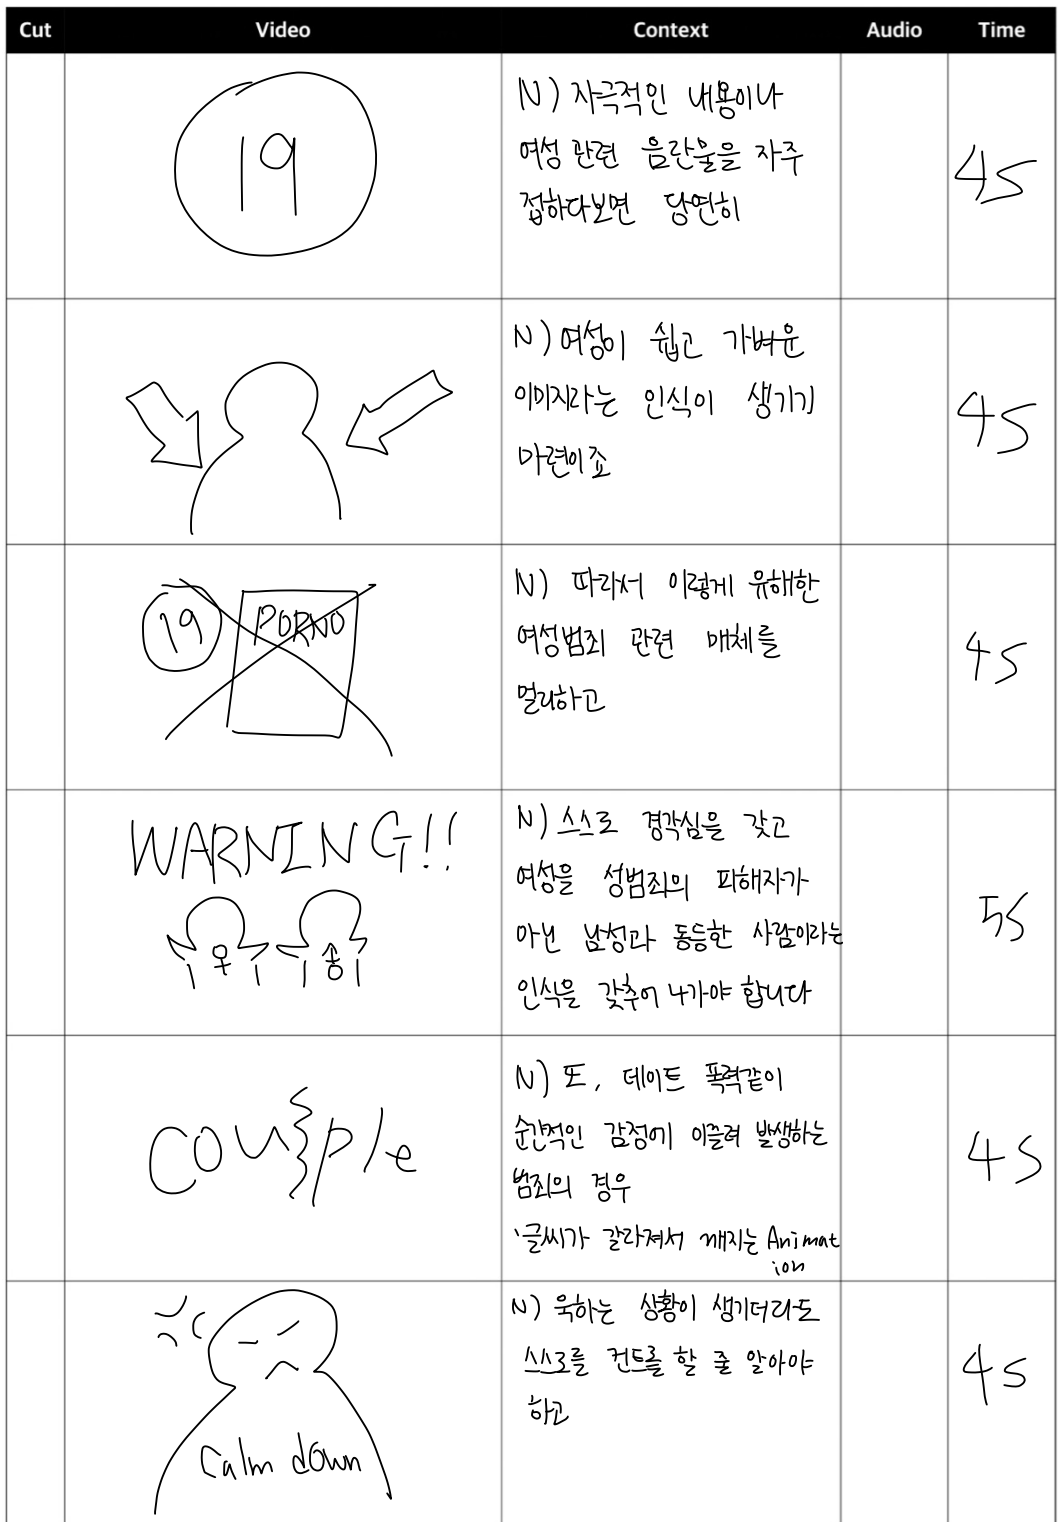 Cut Video Context Audio Time
19
N) 자극적인 내용이나
여성 관련 음란물을 자주
접하다보면 당연히
4s
N) 여성이 쉽고 가벼운
이미지라는 인식이 생기기
마련이죠
4s
19 PORNO
N) 따라서 이렇게 유해한
여성범죄 관련 매체를
멀리하고
4s
WARNING!!
N) 스스로 경각심을 갖고
여성을 성범죄의 피해자가
아닌 남성과 동등한 사람이라는
인식을 갖추어 나가야 합니다
5s
couple
N) 또, 데이트 폭력같이
순간적인 감정에 이끌려 발생하는
범죄의 경우
·글씨가 갈라져서 깨지는 Animat
ion
4s
Calm down
N) 욱하는 상황이 생기더라도
스스로를 컨트롤 할 줄 알아야
하고
4s